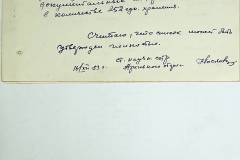 документальных
в количестве 252 ед. хранения.
Считаю, что список может быть
утвержден полностью.
ст. научн. сотр.
Архивного отдела